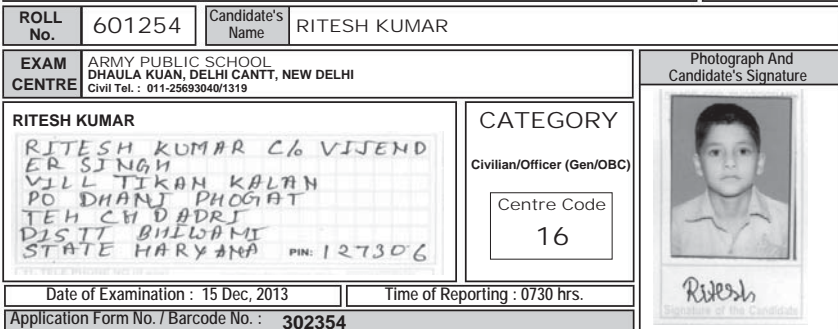 ROLL No. 601254 Candidate's Name RITESH KUMAR
EXAM CENTRE
ARMY PUBLIC SCHOOL
DHAULA KUAN, DELHI CANTT, NEW DELHI
Civil Tel. : 011-25693040/1319
Photograph And
Candidate's Signature
RITESH KUMAR
RITESH KUMAR C/o VIJEND
ER SINGH
VILL TIKAN KALAN
PO DHANI PHOGAT
TEH CH DADRI
DISTT BHIWANI
STATE HARYANA PIN: 127306
CATEGORY
Civilian/Officer (Gen/OBC)
Centre Code
16
Ritesh
Signature of the Candidate
Date of Examination : 15 Dec, 2013
Time of Reporting : 0730 hrs.
Application Form No. / Barcode No. : 302354